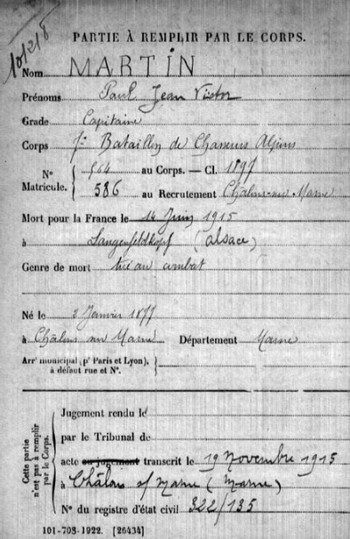 PARTIE À REMPLIR PAR LE CORPS.
Nom MARTIN
Prénoms Paul Jean Victor
Grade Capitaine
Corps 7e Bataillon de Chasseurs Alpins
No 564 au Corps. — Cl. 1897
Matricule. 586 au Recrutement Châlons-sur-Marne
Mort pour la France le 14 Juin 1915
à Langenfeldkopf (Alsace)
Genre de mort tué au combat
Né le 3 Janvier 1877
à Châlons sur Marne Département Marne
Arrt municipal (pr Paris et Lyon),
à défaut rue et No.
Cette partie n'est pas à remplir par le Corps.
Jugement rendu le
par le Tribunal de
acte ou jugement transcrit le 19 Novembre 1915
à Châlons s/ Marne (Marne)
No du registre d'état civil 322/135
101-708-1922. [26434]